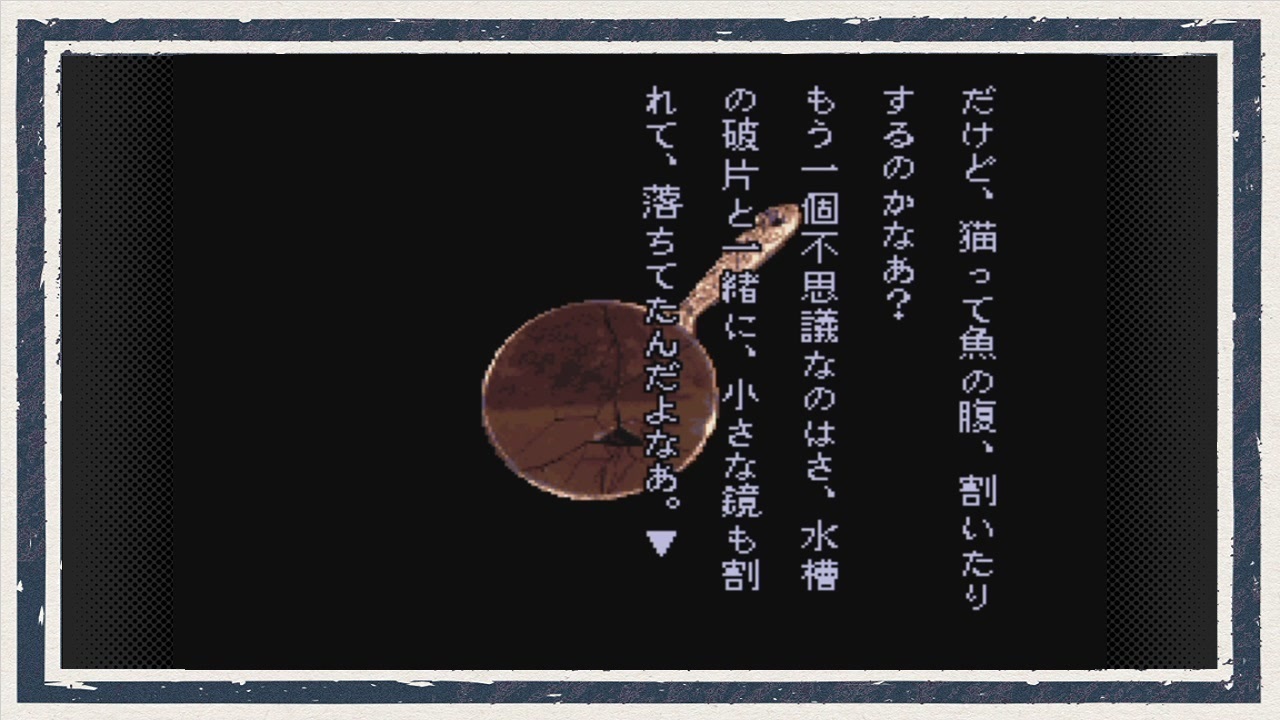 だけど、猫って魚の腹、割いたり
するのかなあ？
もう一個不思議なのはさ、水槽
の破片と一緒に、小さな鏡も割
れて、落ちてたんだよなあ。▼